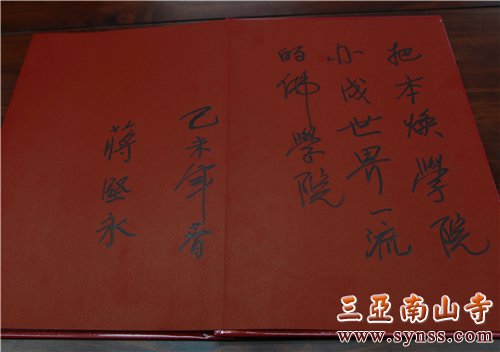 把本焕學院
办成世界一流
的佛學院
乙未年春
蔣坚永
三亞南山寺
www.synss.com